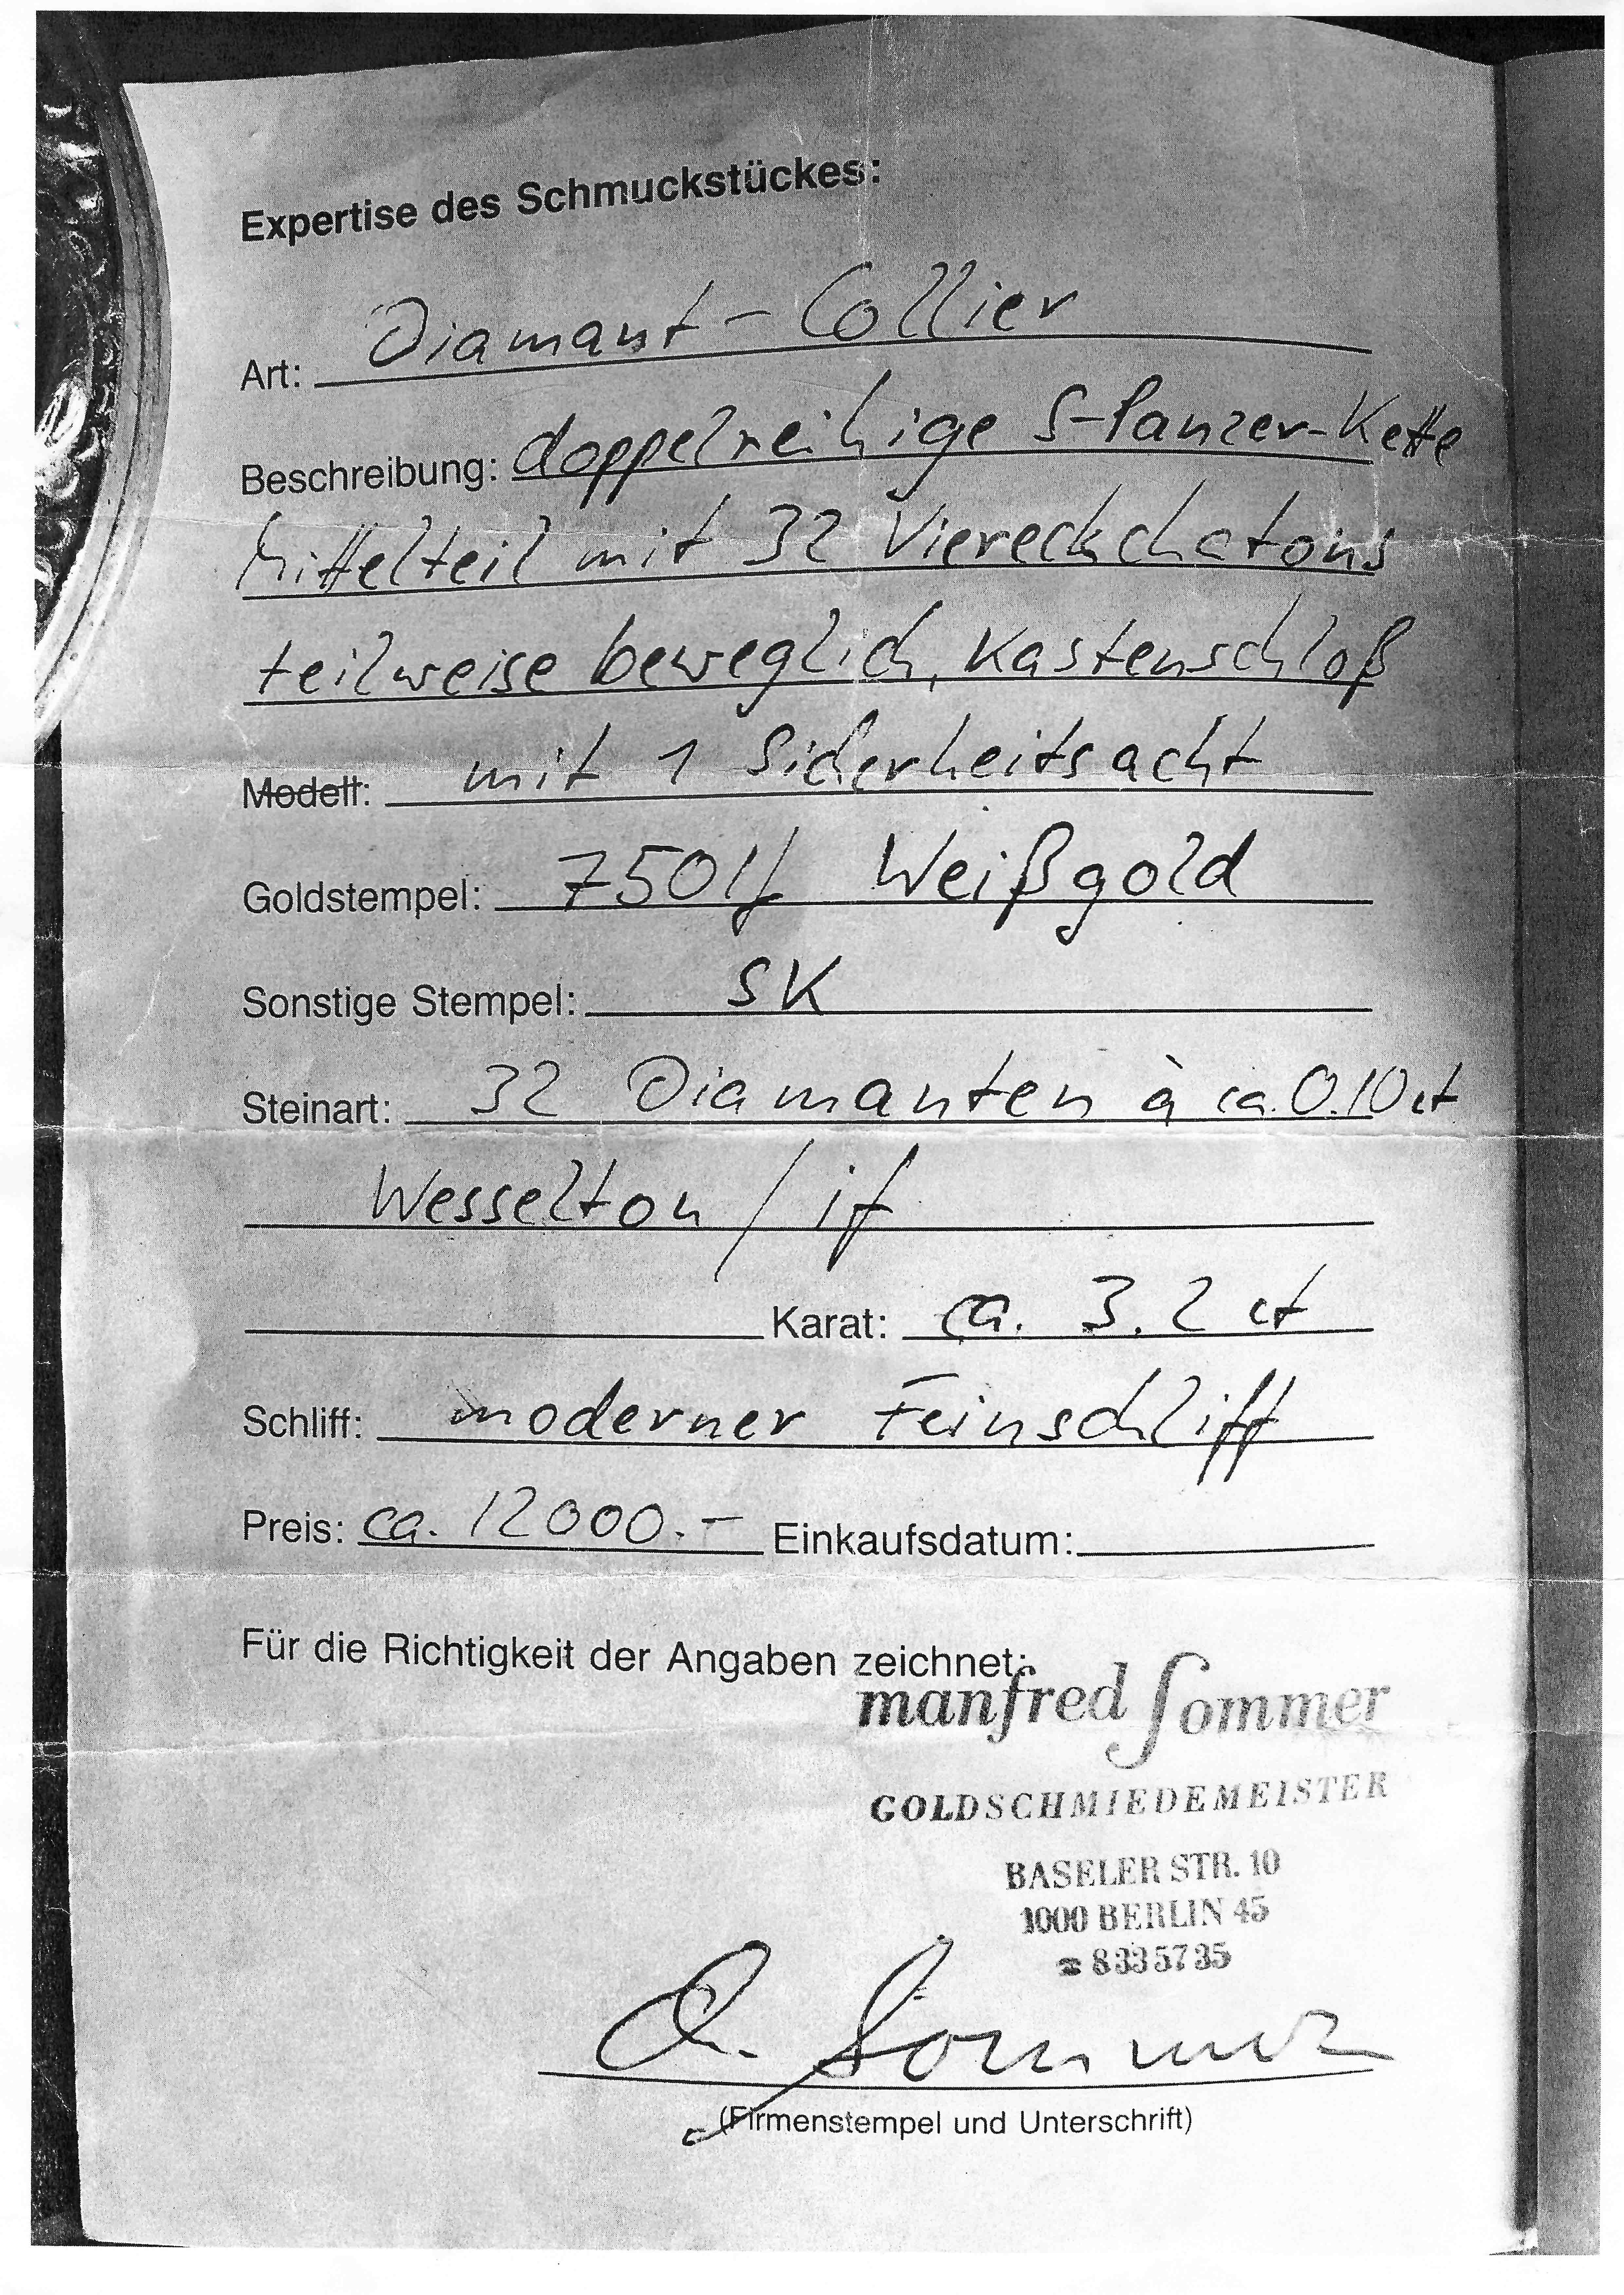 Expertise des Schmuckstückes:
Art: Diamant-Collier
Beschreibung: doppelreihige S-Panzer-Kette
Mittelteil mit 32 Viereckchatons
teilweise beweglich, Kastenschloß
Modell: mit 1 Sicherheitsacht
Goldstempel: 750 Weißgold
Sonstige Stempel: SK
Steinart: 32 Diamanten à ca. 0.10 ct
Wesselton / if
Karat: ca. 3.2 ct
Schliff: moderner Feinschliff
Preis: ca. 12000.- Einkaufsdatum:
Für die Richtigkeit der Angaben zeichnet:
manfred Sommer
GOLDSCHMIEDEMEISTER
BASELER STR. 10
1000 BERLIN 45
☎ 8335735
Sommer
(Firmenstempel und Unterschrift)